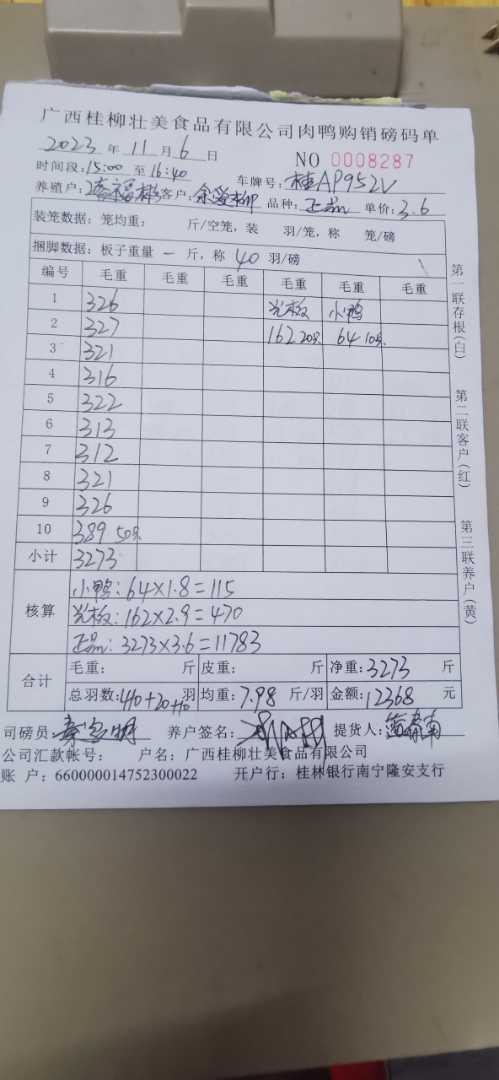 广西桂柳壮美食品有限公司肉鸭购销磅码单
2023 年 11 月 6 日 NO 0008287
时间段:15:00 至 16:40 车牌号: 桂AP952V
养殖户: 客户: 品种: 正品 单价: 3.6
装笼数据: 笼均重: 斤/空笼, 装 羽/笼, 称 笼/磅
捆脚数据: 板子重量 一 斤, 称 40 羽/磅
编号 毛重 毛重 毛重 毛重 毛重 毛重
1 326 光板 小鸭
2 327 162 20只 64 10只
3 321
4 316
5 322
6 313
7 312
8 321
9 326
10 389 50只
小计 3273
核算
小鸭: 64×1.8=115
光板: 162×2.9=470
正品: 3273×3.6=11783
合计
毛重: 斤 皮重: 斤 净重: 3273 斤
总羽数: 410+20+10 羽 均重: 7.98 斤/羽 金额: 12368 元
司磅员: 养户签名: 提货人:
公司汇款帐号: 户名: 广西桂柳壮美食品有限公司
账 户: 660000014752300022 开户行: 桂林银行南宁隆安支行
第一联存根(白)
第二联客户(红)
第三联养户(黄)